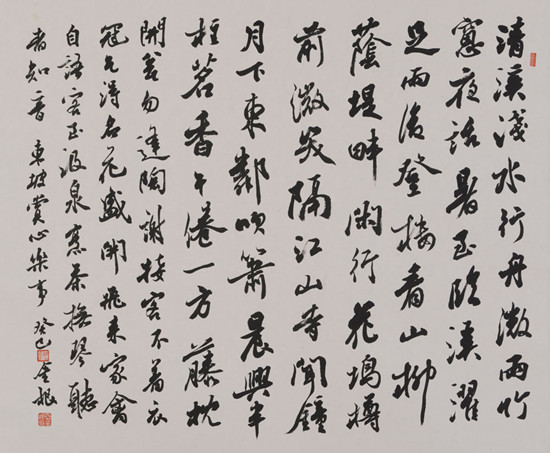 清溪淺水行舟微雨竹
窓夜話暑至臨溪濯
足雨後登樓看山柳
蔭堤畔閑行花塢樽
前微笑隔江山寺聞鐘
月下東鄰吹簫晨興半
柱茗香午倦一方藤枕
開瓮勿逢陶謝接客不着衣
冠乞得名花盛開飛来家禽
自語客至汲泉烹茶撫琴聽
者知音 東坡賞心樂事 癸巳 金